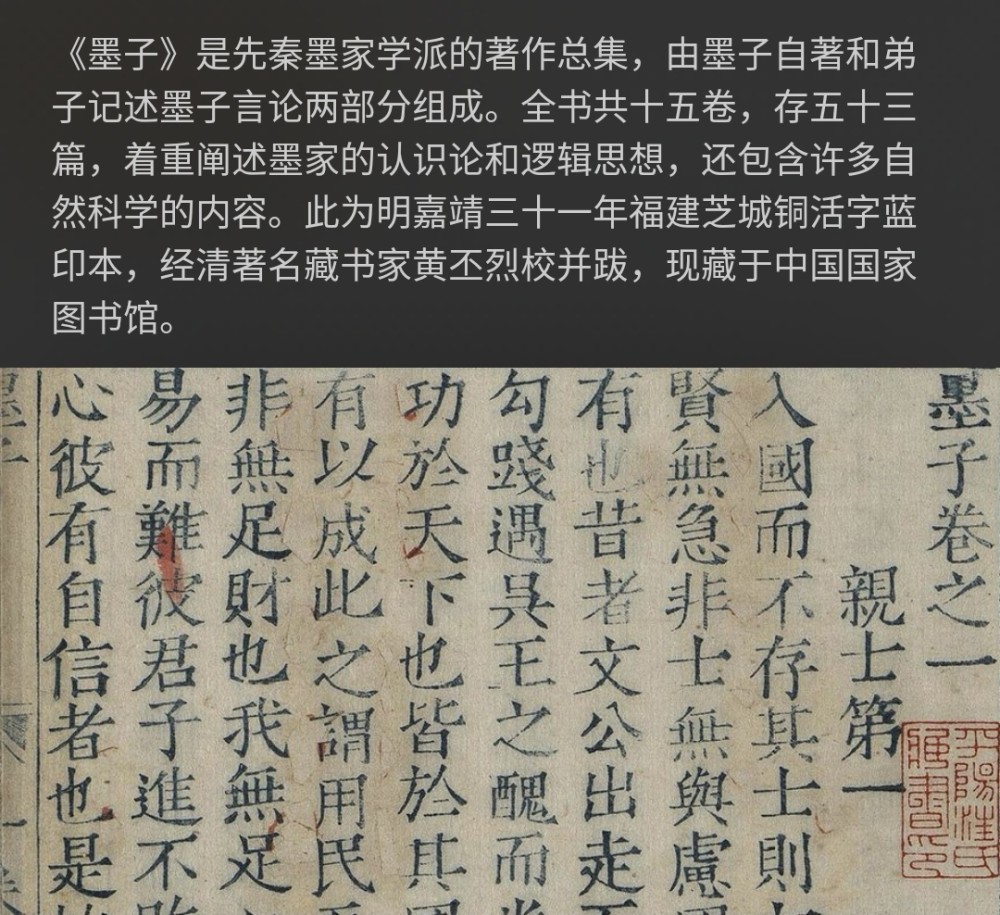 《墨子》是先秦墨家学派的著作总集，由墨子自著和弟
子记述墨子言论两部分组成。全书共十五卷，存五十三
篇，着重阐述墨家的认识论和逻辑思想，还包含许多自
然科学的内容。此为明嘉靖三十一年福建芝城铜活字蓝
印本，经清著名藏书家黄丕烈校并跋，现藏于中国国家
图书馆。
墨子卷之一
親士第一
入國而不存其士則
賢無急非士無與慮
有也昔者文公出走
勾踐遇吳王之醜而
功於天下也皆於其
有以成此之謂用民
非無足財也我無足
易而難彼君子進不
心彼有自信者也是
平陽汪氏
藏書印